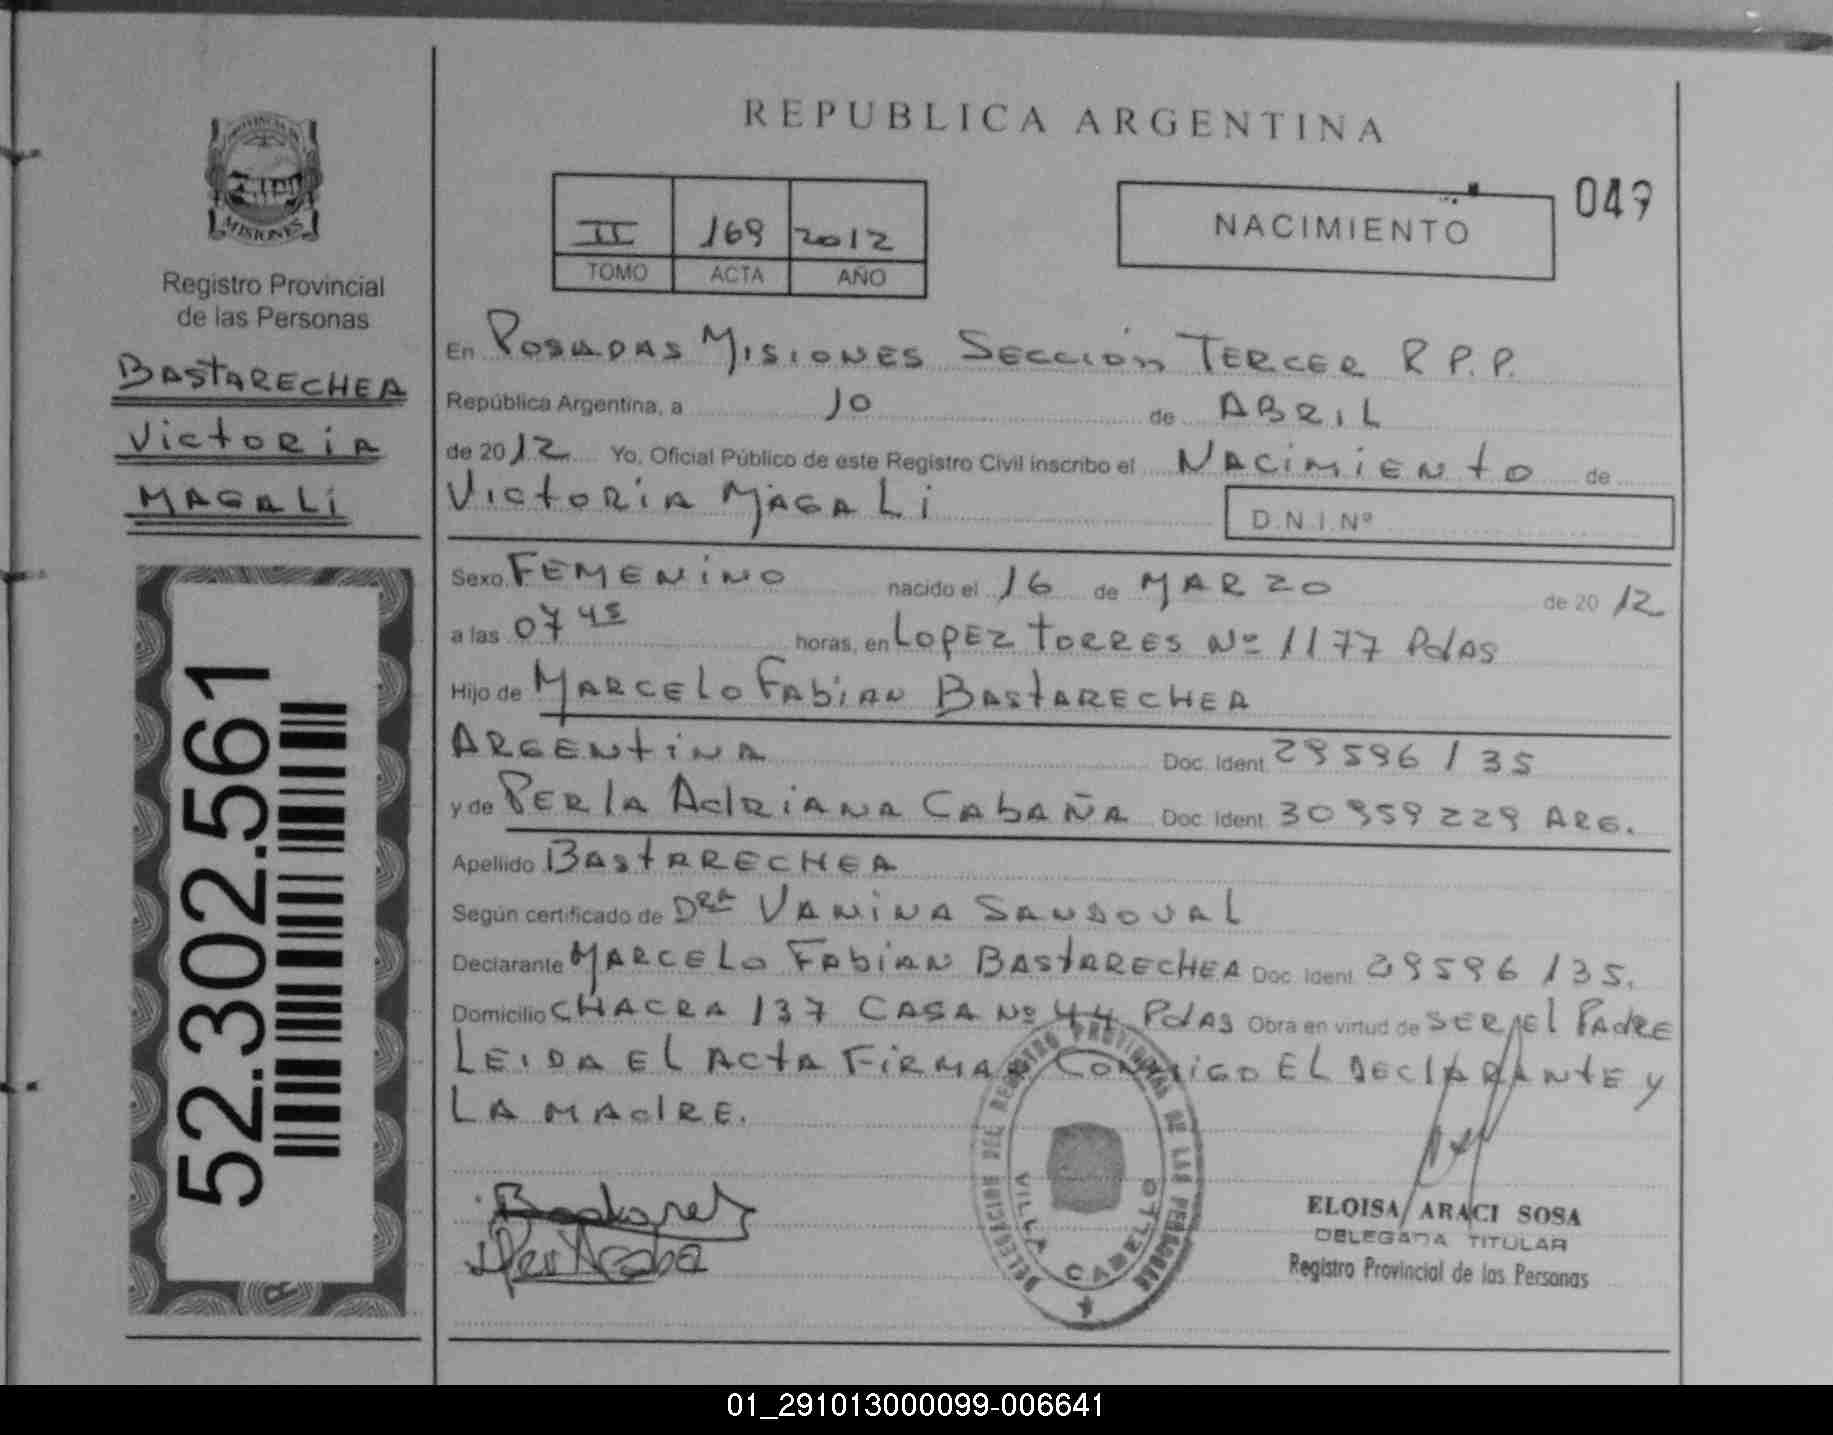 REPUBLICA ARGENTINA
PROVINCIA DE
MISIONES
Registro Provincial
de las Personas
BASTARECHEA
Victoria
MAGALi
52.302.561
II 169 2012
TOMO ACTA AÑO
NACIMIENTO
049
En POSADAS MISIONES SECCIÓN TERCER R P.P.
República Argentina, a 10 de ABRIL
de 2012 Yo, Oficial Público de este Registro Civil inscribo el NACIMIENTO de
VICTORIA MAGALi
D.N.I.Nº
Sexo FEMENINO nacido el 16 de MARZO de 2012
a las 07 45 horas, en LOPEZ TORRES Nº 1177 PdAS
Hijo de MARCELO FABIAN BASTARECHEA
ARGENTINA Doc. Ident. 29596135
y de PERLA AdRIANA CABAÑA Doc. Ident. 30959229 ARG.
Apellido BASTARRECHEA
Según certificado de DRA VANINA SANDOVAL
Declarante MARCELO FABIAN BASTARRECHEA Doc. Ident. 29596135.
Domicilio CHACRA 137 CASA Nº 44 PdAS Obra en virtud de SER EL PAdRE
LEIDA EL ACTA FIRMAN CONMIGO EL DECLARANTE y
LA MAdRE.
DELEGACION DEL REGISTRO PROVINCIAL DE LAS PERSONAS
VILLA CABELLO
ELOISA ARACI SOSA
DELEGADA TITULAR
Registro Provincial de las Personas
01_291013000099-006641